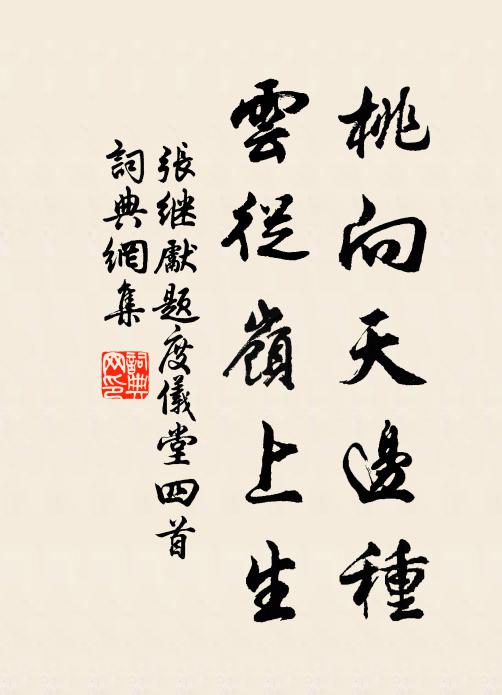 桃向天邊種
雲從嶺上生
張继獻题度儀堂四首
詞典網集
詞典网印